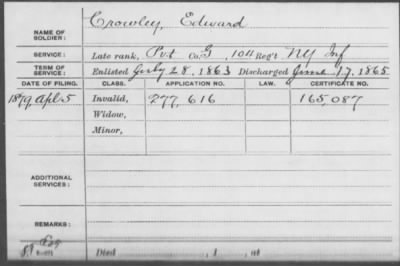 NAME OF SOLDIER: Crowley, Edward
SERVICE: Late rank, Pvt Co. G, 104 Reg't NY Inf
TERM OF SERVICE: Enlisted July 28, 1863 Discharged June 17, 1865
DATE OF FILING. CLASS. APPLICATION NO. LAW. CERTIFICATE NO.
1879, Apl 5 Invalid, 277,616 165,087
Widow,
Minor,
ADDITIONAL SERVICES:
REMARKS:
Died , 1 , at